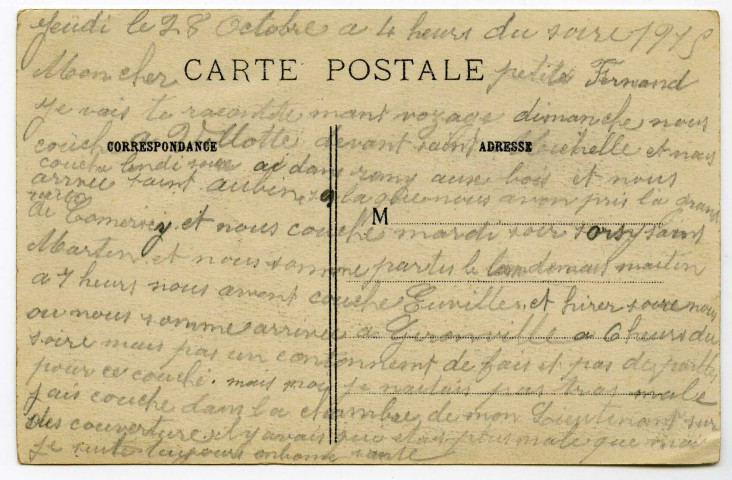 Jeudi le 28 Octobre a 4 heurs du soire 1915
Mon cher petite Fernand
CARTE POSTALE
je vais te raconte mant voyage dimanche nous
couche a Villotte devant saint Michelle et nous
CORRESPONDANCE
ADRESSE
couche lendi soire dans rang aux bois et nous
arrive saint aubin la nous avon pris la grand
de Comercy et nous couche mardi soir sorsy saint
M
Martin et nous somme partis le landemais maitin
a 7 heurs nous avont couche Euville et hirer soire nous
ou nous somme arrivée a Gironville a 6 heurs du
soire mais pas un contonnement de fais et pas de pailles
pour ce couché. mais moi je naitais pas tros male
jais couche dans la chambre de mon Lieutenant sur
des couverture il y avais plus male que moi
je suit toujours en bonne sante